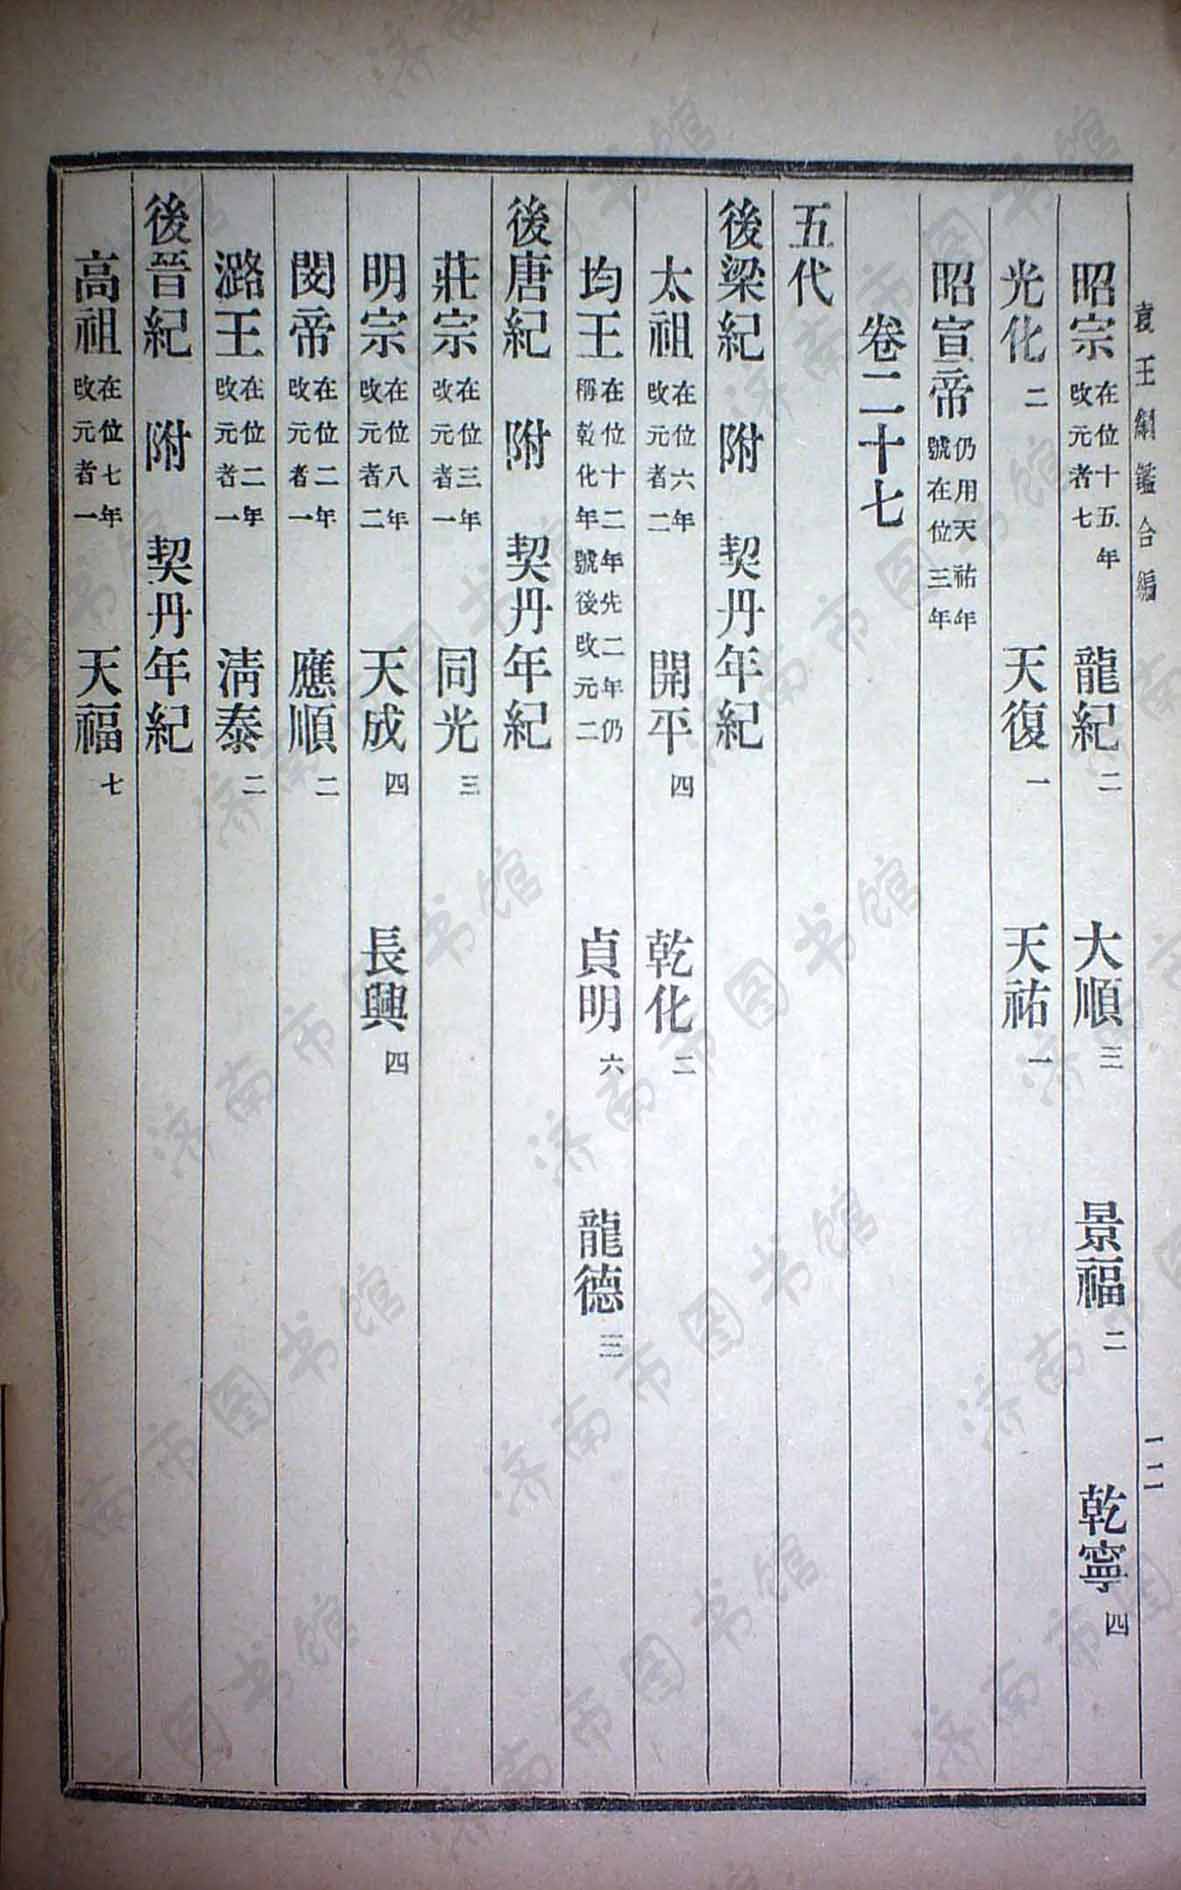 袁王綱鑑合編
昭宗 在位十五年改元者七 龍紀二 大順三 景福二 乾寧四
光化二 天復一 天祐一
昭宣帝 仍用天祐年號在位三年
卷二十七
五代
後梁紀 附 契丹年紀
太祖 在位六年改元者二 開平四 乾化二
均王 在位十二年先二年仍稱乾化年號後改元二 貞明六 龍德三
後唐紀 附 契丹年紀
莊宗 在位三年改元者一 同光三
明宗 在位八年改元者二 天成四 長興四
閔帝 在位二年改元者一 應順二
潞王 在位二年改元者一 清泰二
後晉紀 附 契丹年紀
高祖 在位七年改元者一 天福七
济南市图书馆